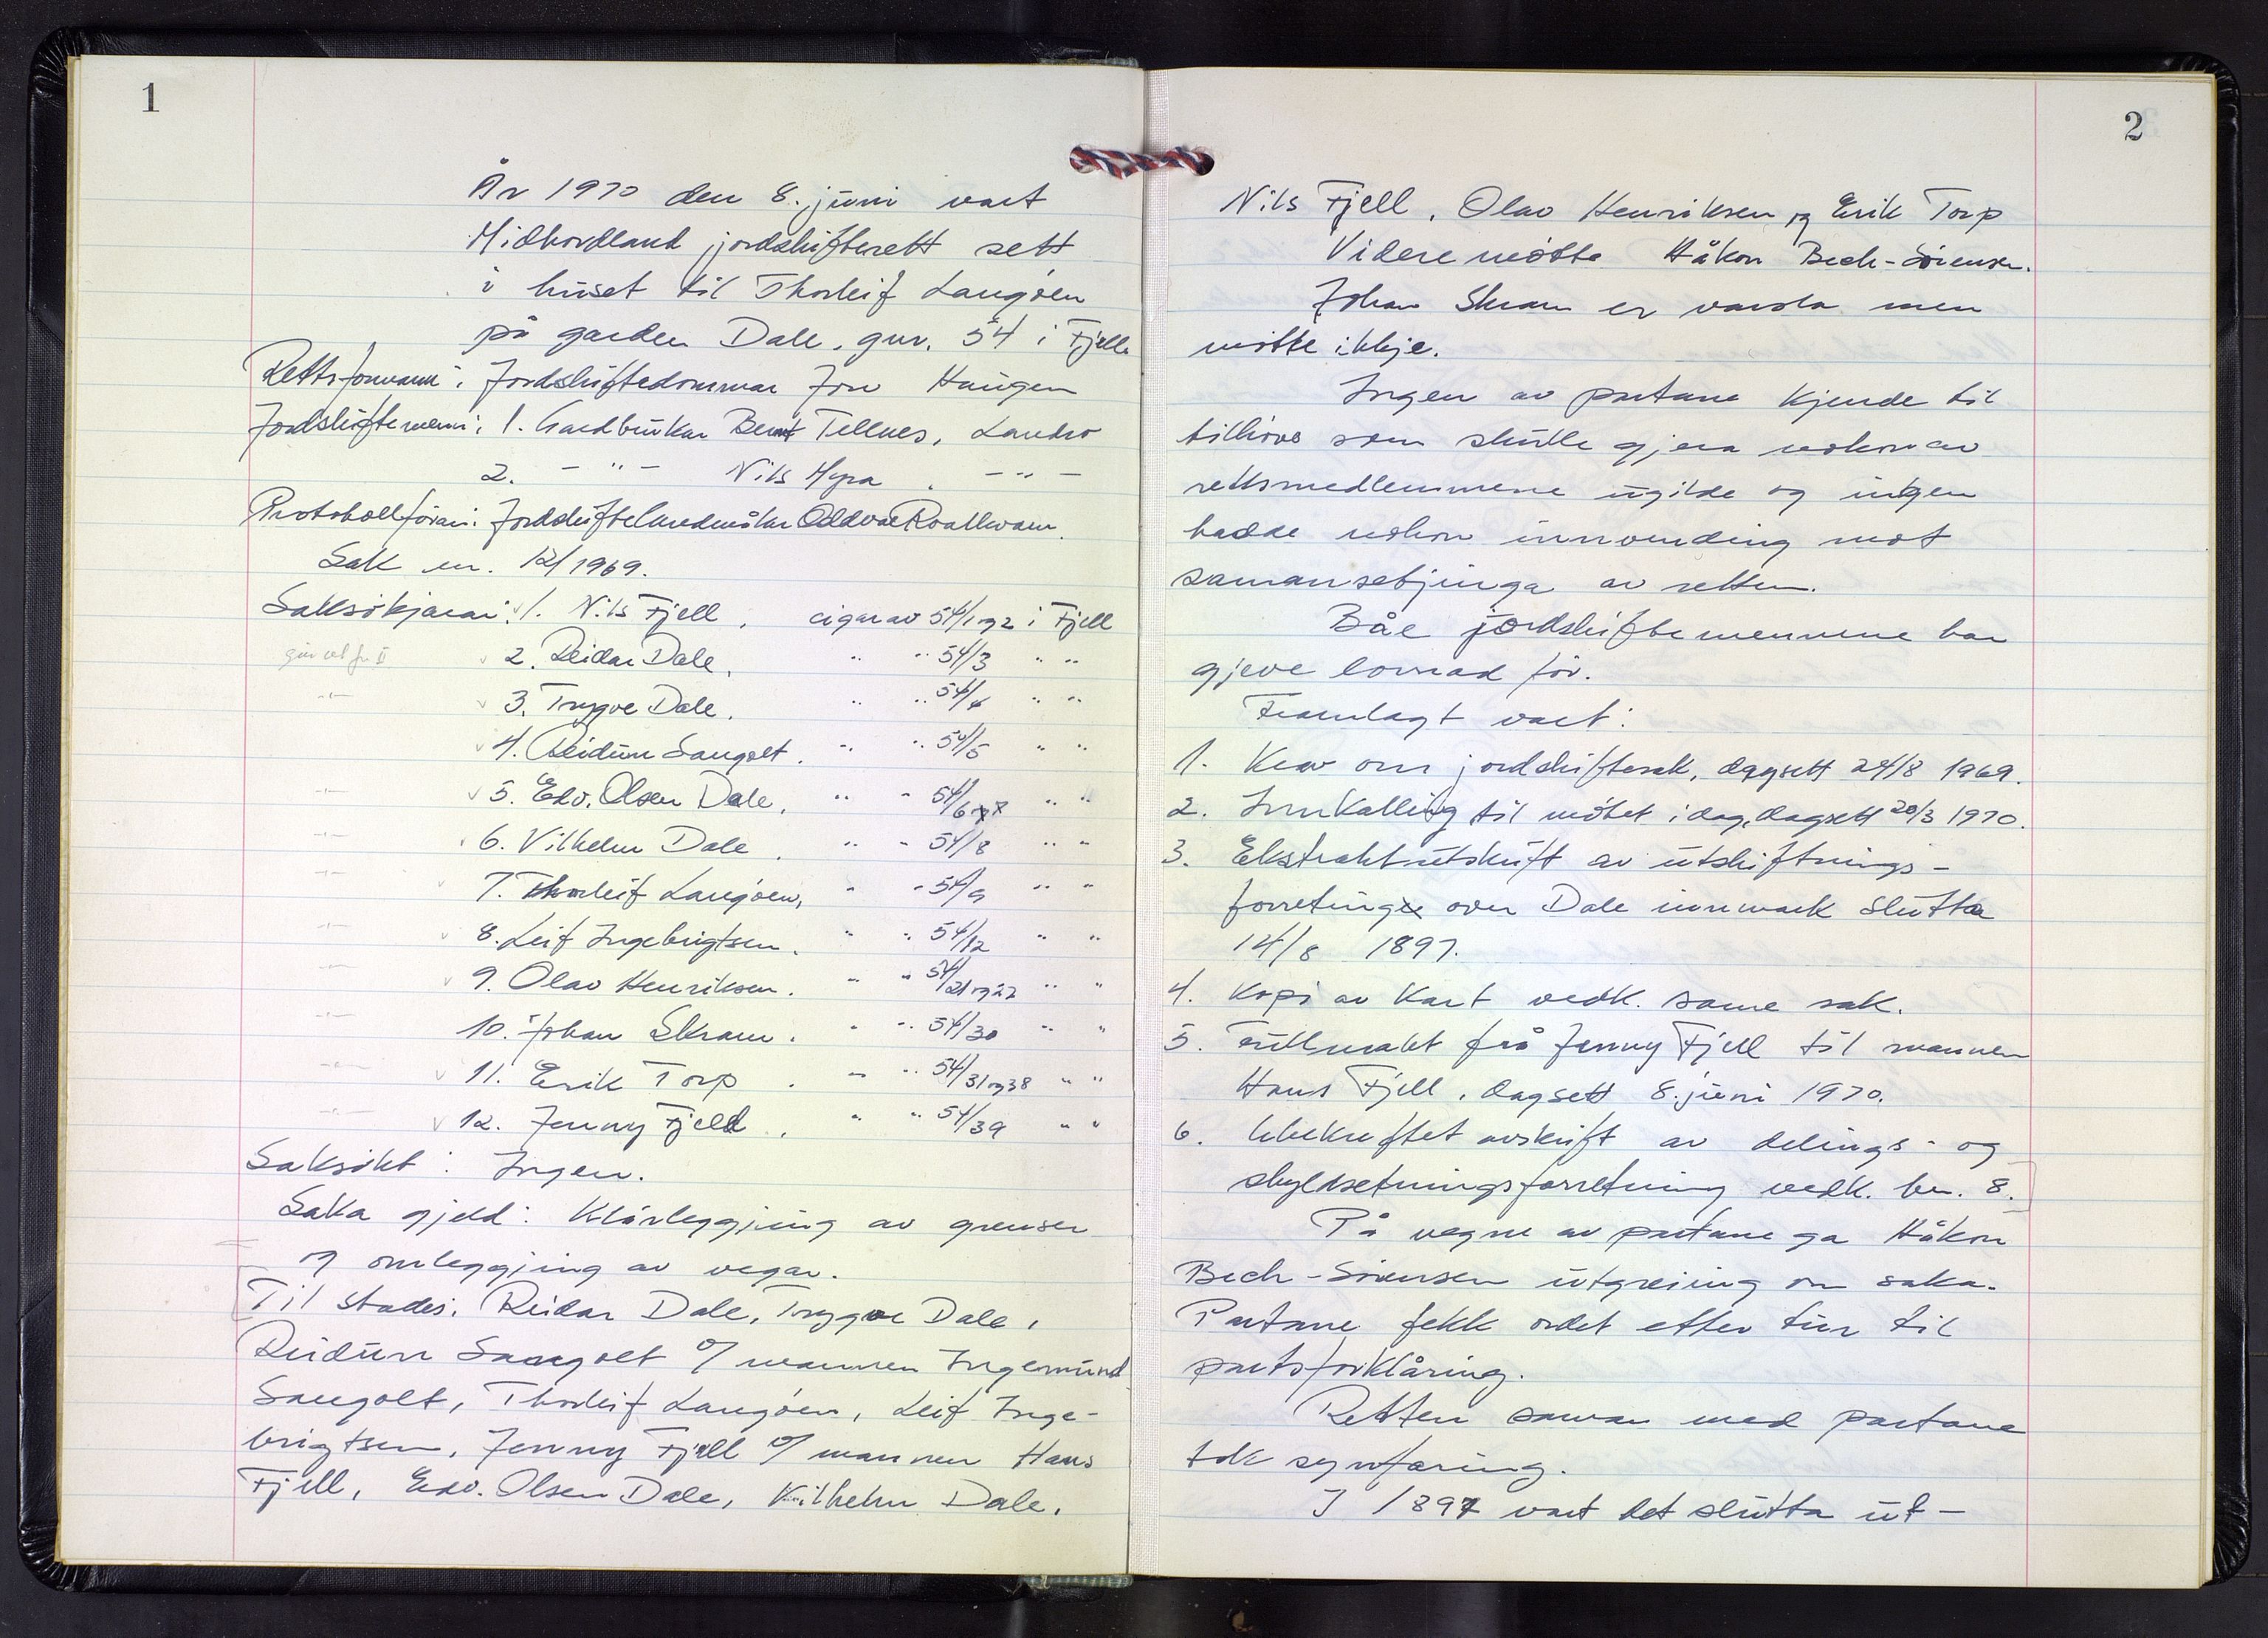 1
År 1970 den 8. juni vart
Midhordland jordskifterett sett
i huset til Thorleif Langöen
på garden Dale, gnr. 54 i Fjell.
Rettsformann: Jordskiftedommar Jon Haugen
Jordskiftemenn: 1. Gardbrukar Bernt Tellnes, Landro
2. - " - Nils Myra, - " -
Protokollförar: Jordskiftelandmålar Oddvar Roallkvam.
Sak nr. 12/1969.
Saksökjarar: 1. Nils Fjell, eigar av 54/1 og 2 i Fjell
2. Reidar Dale, " " 54/3 " "
3. Trygve Dale, " " 54/4 " "
4. Reidun Sangolt, " " 54/5 " "
5. Edv. Olsen Dale, " " 54/6 og 7 " "
6. Vilhelm Dale, " " 54/8 " "
7. Thorleif Langöen, " " 54/9 " "
8. Leif Ingebrigtsen, " " 54/12 " "
9. Olav Henriksen, " " 54/21 og 22 " "
10. Johan Skram, " " 54/30 " "
11. Erik Torp, " " 54/31 og 38 " "
12. Jenny Fjell, " " 54/39 " "
Saksökt: Ingen.
Saka gjeld: Klårleggjing av grenser
og omleggjing av vegar.
Til stades: Reidar Dale, Trygve Dale,
Reidun Sangolt v/ mannen Ingemund
Sangolt, Thorleif Langöen, Leif Inge-
brigtsen, Jenny Fjell v/ mannen Hans
Fjell, Edv. Olsen Dale, Vilhelm Dale,
2
Nils Fjell, Olav Henriksen og Erik Torp
Videre mötte Håkon Bech-Sörensen.
Johan Skram er varsla men
mötte ikkje.
Ingen av partane kjende til
tilhöve som skulle gjera nokon av
rettsmedlemmene ugilde og ingen
hadde nokon innvending mot
samansetjinga av retten.
Båe jordskiftemennene har
gjeve lovnad för.
Framlagt vart:
1. Krav om jordskiftesak, dagsett 29/8 1969.
2. Innkalling til mötet i dag, dagsett 20/3 1970.
3. Ekstraktutskrift av utskiftnings-
forreting over Dale innmark slutta
14/8 1897.
4. Kopi av kart vedk. same sak.
5. Fullmakt frå Jenny Fjell til mannen
Hans Fjell, dagsett 8. juni 1970.
6. Ubekreftet avskrift av delings- og
skyldsetningsforretning vedk. bn. 8.
På vegne av partane ga Håkon
Bech-Sörensen utgreiing om saka.
Partane fekk ordet etter tur til
partsforklåring.
Retten saman med partane
tok synfaring.
I 1897 vart det slutta ut-